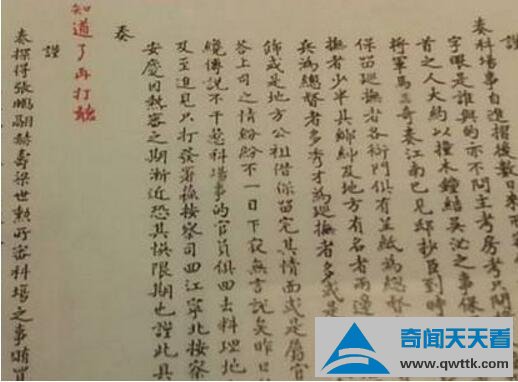 奏科場事自進摺後數日來
字眼是誰與的亦不問主考房考只問
首之人大約以撞木鐘結吳泌之事保
將軍馬三奇奏江南已見邸抄臣到時
保留廵撫者各衙門俱有呈紙為總督
撫者少半其餘糾及地方有名者兩邊
兵為總督者多秀才為廵撫者多或是
餙或是地方公祖借保留完其情面或是屬官
答上司之情紛紛不一日下寂無言說矣昨日
纔傳說不干惹科場事的官員俱回去料理地
及至進見只打發署撫按察司回江寧北按察
安慶因熱審之期漸近恐其悮限期也謹此具
奏
知道了再打聽
謹
奏探得張鵬翮赫壽梁世勳所審科場之事賄買
奇闻天天看
www.qwttk.com